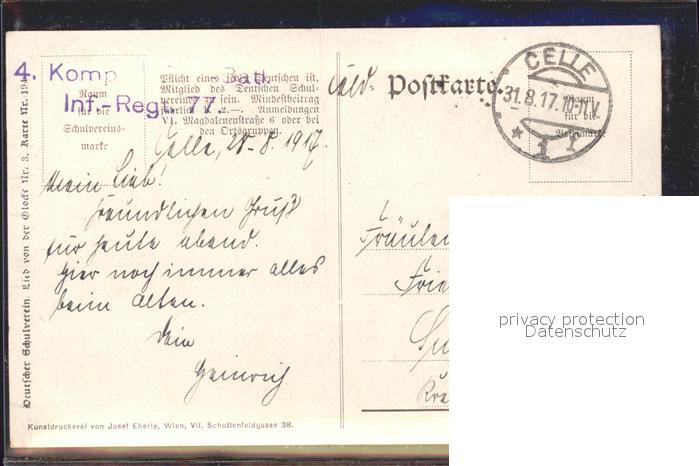 4. Komp Bat.
Inf.-Regt. 77.
Raum
für die
Schulvereins-
marke
Pflicht eines jeden Deutschen ist,
Mitglied des Deutschen Schul-
vereins zu sein. Mindestbeitrag
jährlich 2.—. Anmeldungen
VI. Magdalenenstraße 6 oder bei
den Ortsgruppen.
Feld-
Postkarte.
CELLE
31.8.17.10-11V.
* 1 f
Raum
für die
Briefmarke
Celle, 28-8.1917.
Mein Lieb!
Freundlichen Gruß
für heute abend.
Hier noch immer alles
beim Alten.
Dein
Heinrich
Fräulein
Frie
Kre
privacy protection
Datenschutz
Deutscher Schulverein. Lied von der Glocke Nr. 3. Karte Nr. 19
Kunstdruckerei von Josef Eberle, Wien, VII. Schottenfeldgasse 38.